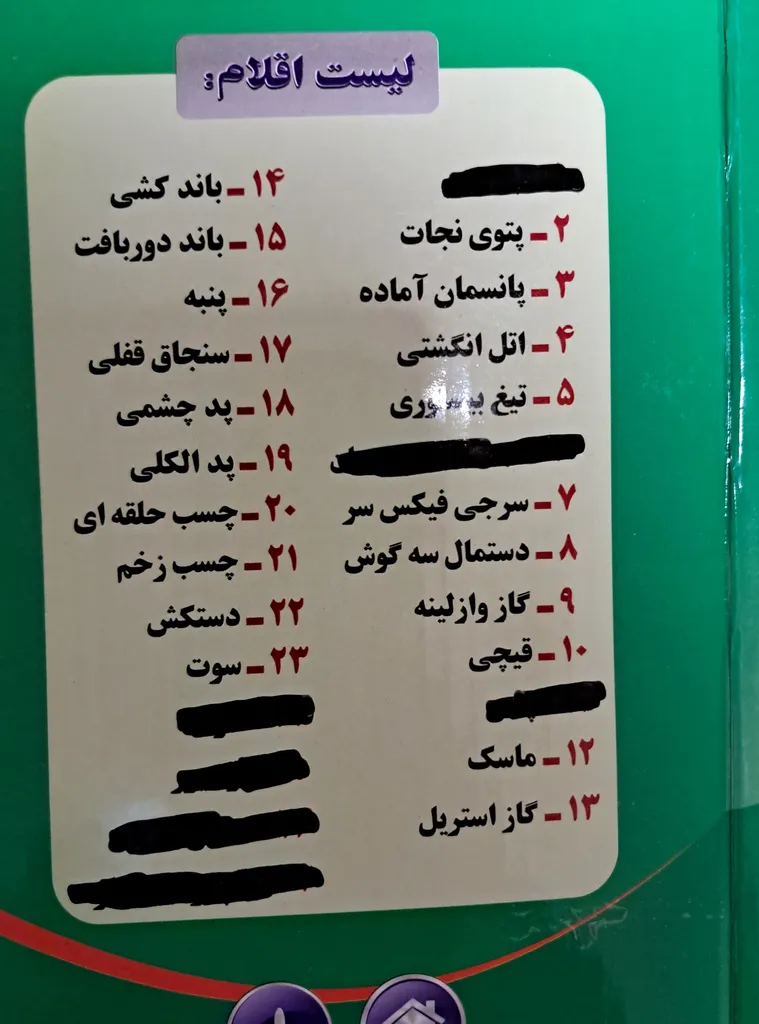 لیست اقلام:
۲ـ پتوی نجات
۳ـ پانسمان آماده
۴ـ اتل انگشتی
۵ـ تیغ بیستوری
۷ـ سرجی فیکس سر
۸ـ دستمال سه گوش
۹ـ گاز وازلینه
۱۰ـ قیچی
۱۲ـ ماسک
۱۳ـ گاز استریل
۱۴ـ باند کشی
۱۵ـ باند دوربافت
۱۶ـ پنبه
۱۷ـ سنجاق قفلی
۱۸ـ پد چشمی
۱۹ـ پد الکلی
۲۰ـ چسب حلقه ای
۲۱ـ چسب زخم
۲۲ـ دستکش
۲۳ـ سوت